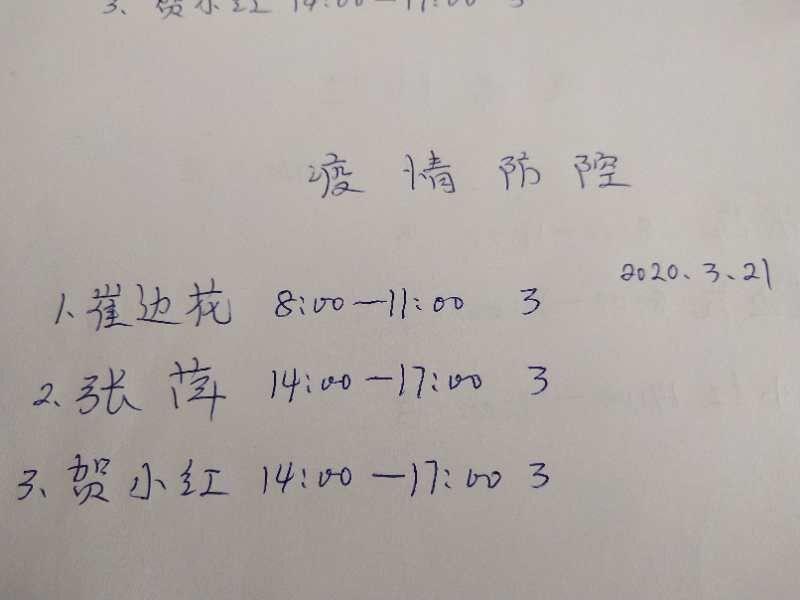 3、贺小红 14:00—17:00 3
疫情防控
2020.3.21
1、崔边花 8:00—11:00 3
2、张萍 14:00—17:00 3
3、贺小红 14:00—17:00 3